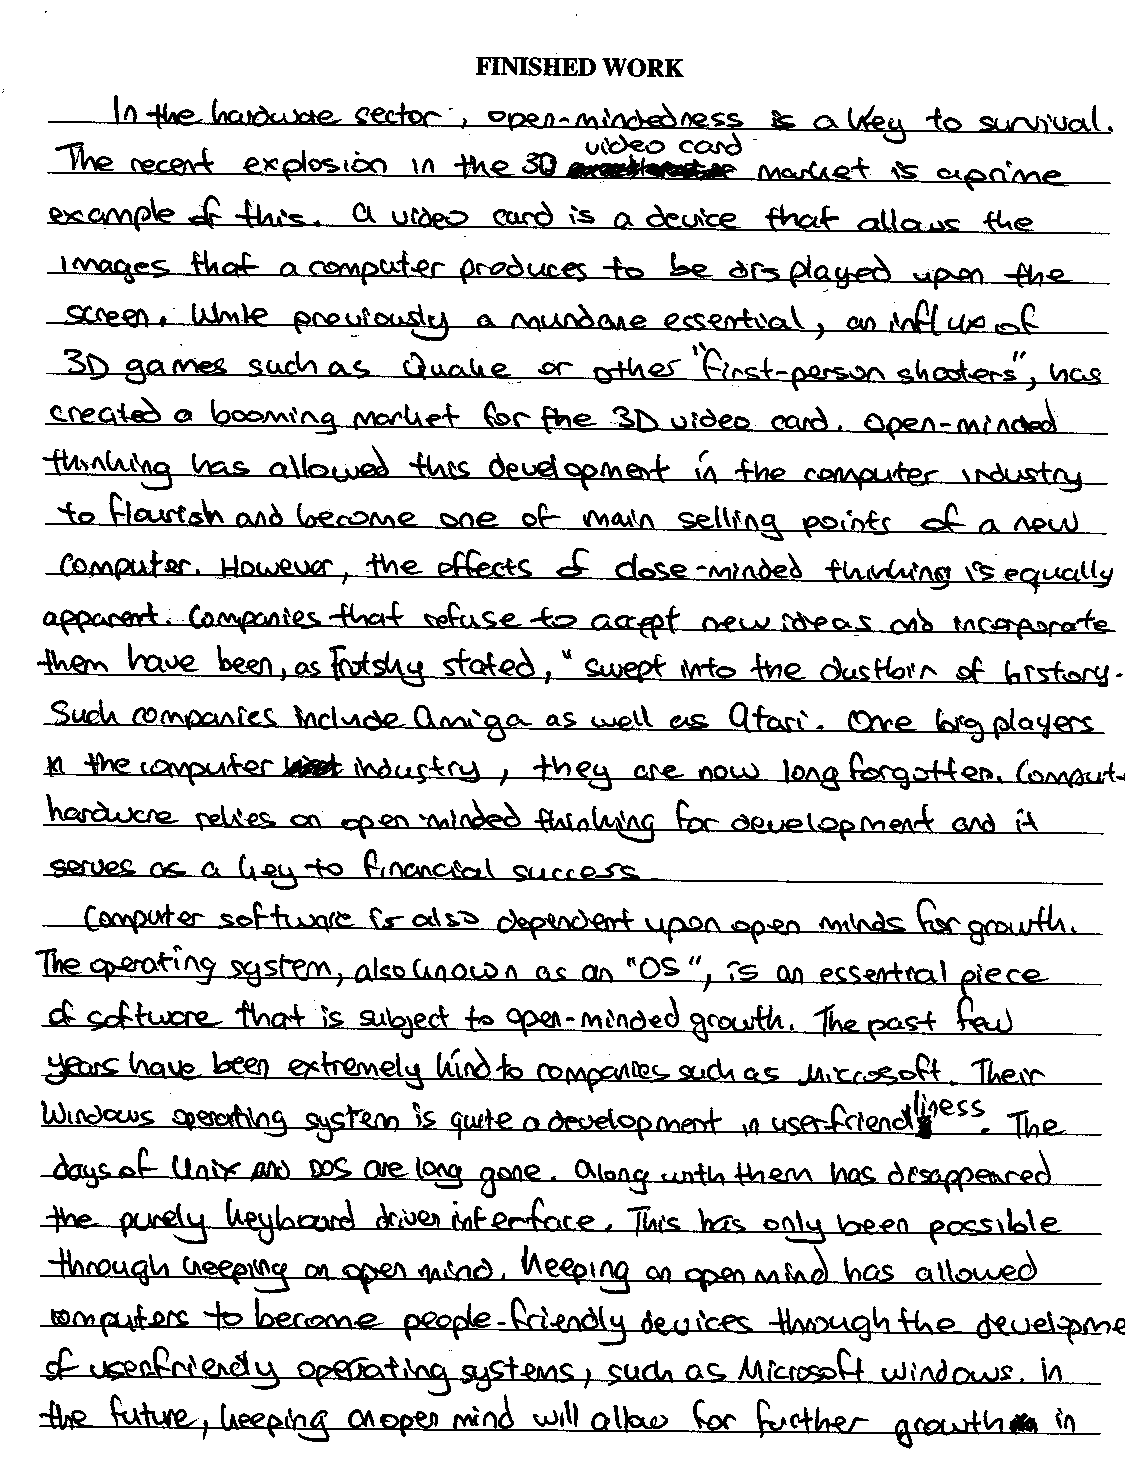 FINISHED WORK
In the hardware sector, open-mindedness is a key to survival.
video card
The recent explosion in the 3D market is a prime
example of this. A video card is a device that allows the
images that a computer produces to be displayed upon the
screen. While previously a mundane essential, an influx of
3D games such as Quake or other "first-person shooters", has
created a booming market for the 3D video card. Open-minded
thinking has allowed this development in the computer industry
to flourish and become one of main selling points of a new
computer. However, the effects of close-minded thinking is equally
apparent. Companies that refuse to accept new ideas and incorporate
them have been, as Trotsky stated, "swept into the dustbin of history.
Such companies include Amiga as well as Atari. Once big players
in the computer industry, they are now long forgotten. Comput-
hardware relies on open minded thinking for development and it
serves as a key to financial success
Computer software is also dependent upon open minds for growth.
The operating system, also known as an "OS", is an essential piece
of software that is subject to open-minded growth. The past few
years have been extremely kind to companies such as Microsoft. Their
Windows operating system is quite a development in user-friendliness. The
days of Unix and DOS are long gone. Along with them has disappeared
the purely keyboard driven interface. This has only been possible
through keeping an open mind. Keeping an open mind has allowed
computers to become people-friendly devices through the developme
of userfriendly operating systems, such as Microsoft Windows. In
the future, keeping an open mind will allow for further growth in